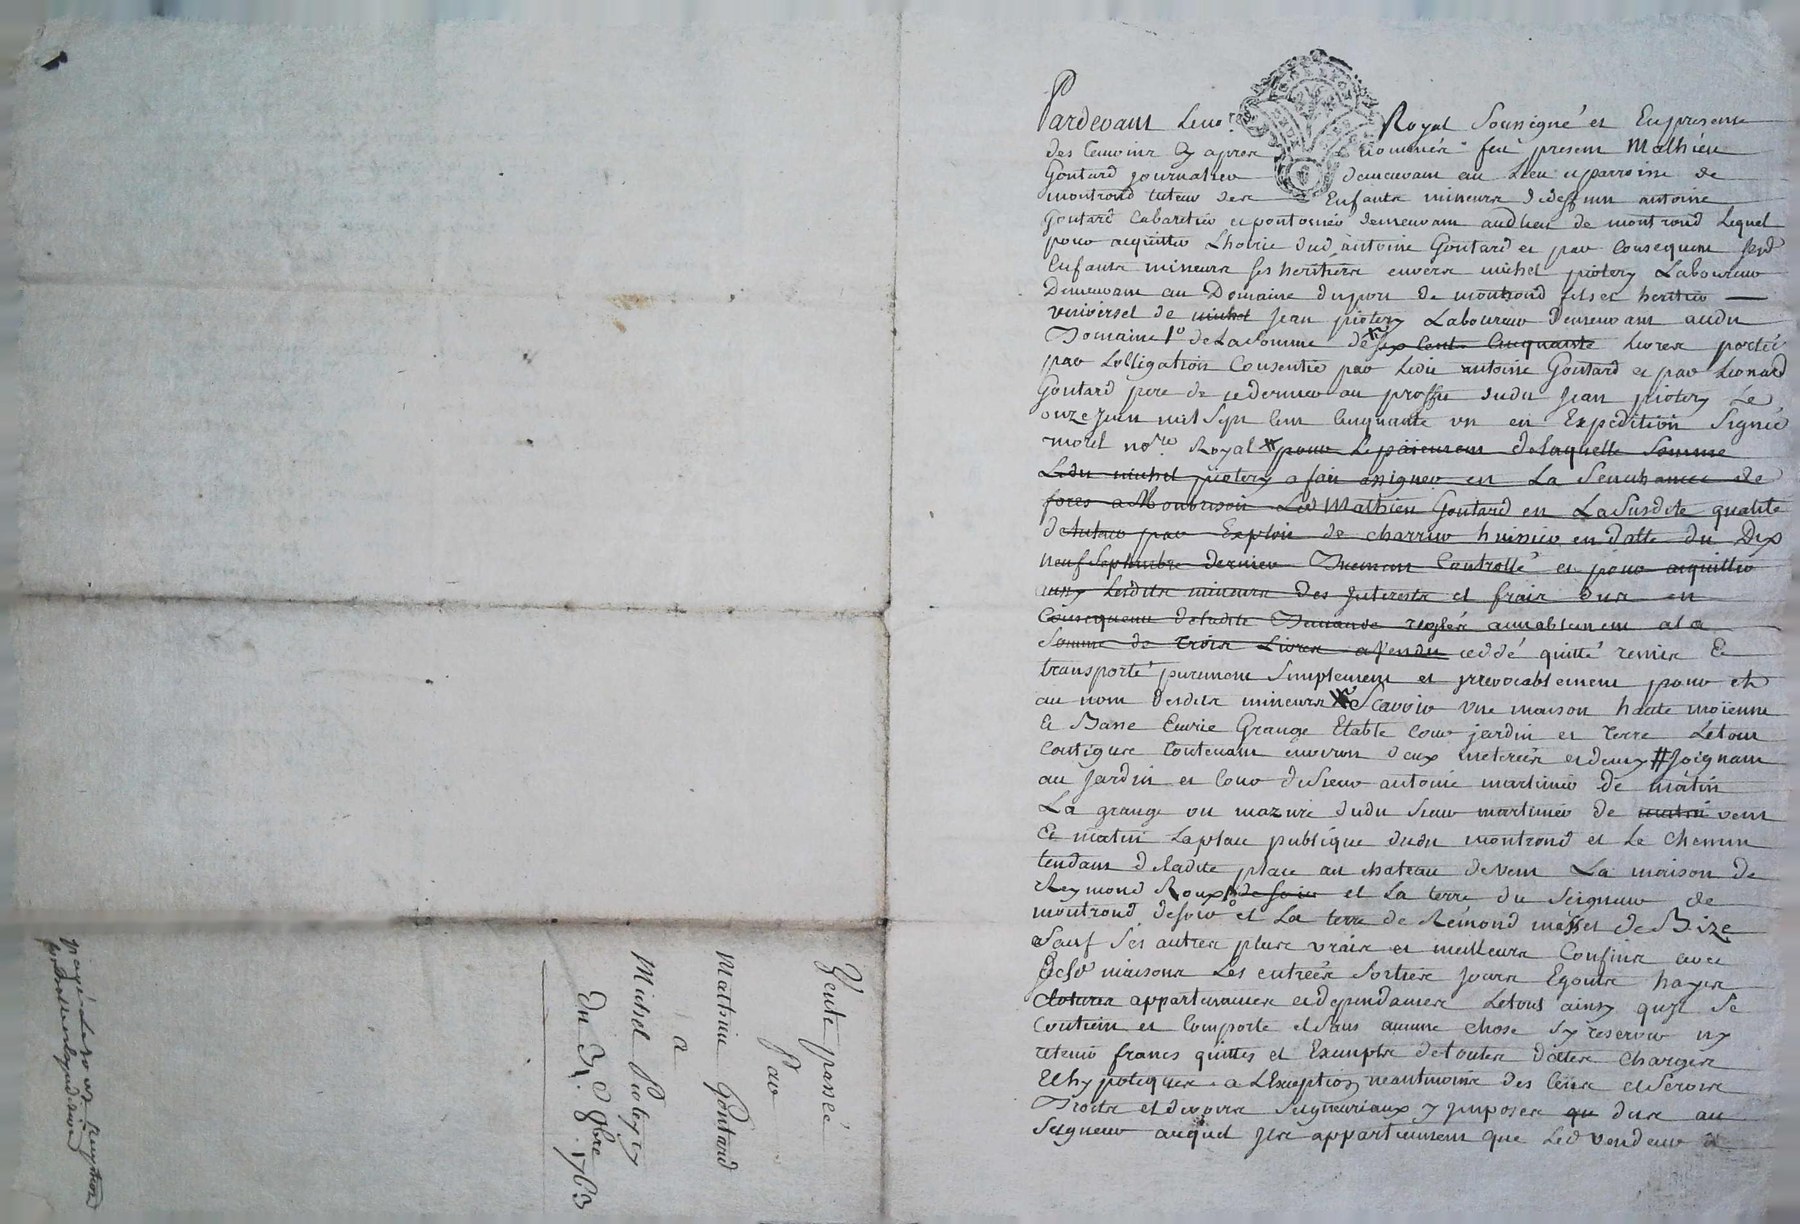 Pardevant Le no.re Royal Soussigné et En presence
des temoins Cy apres nommés feu present Mathieu
Goutard journalier demeurant au Lieu et parroisse de
montrond tuteur des Enfants mineurs de deffunt antoine
Goutard Cabaretier et pontonnier demeurant audit lieu de montrond Lequel
pour acquitter L'hoirie dud antoine Goutard et par Consequent lesd
Enfants mineurs ses heritiers envers michel piotery Laboureur
Demeurant au Domaine du port de montrond fils et heritier
universel de michel Jean piotery Laboureur Demeurant audit
Domaine 1o de La somme de six Cent Cinquante Livres portée
par Lobligation Consentie par Ledit antoine Goutard et par Leonard
Goutard pere de ce dernier au proffit dudit Jean piotery Le
onze Juin mil Sept Cent Cinquante un en Expedition Signé
morel no.re Royal # pour Le paiement de laquelle Somme
Ledit michel piotery a fait assigner en La Senechaussée de
forez a Montbrison Led Mathieu Goutard en La Susdite qualité
de tuteur par Exploit de charrier huissier en datte du Dix
neuf Septembre dernier Duement Controllé et pour acquitter
aussy Lesdits mineurs des Interests et frais dus en
Consequence de ladite Demande reglés amiablement a la
Somme de trois Livres a Vendu ceddé quitté remis Et
transporté purement Simplement et jrrevocablement pour et
au nom desdits mineurs Scavoir une maison haute moïenne
Et Basse Ecurie Grange Etable Cour jardin et terre Le tout
Contigus Contenant environ deux meterées et demy # Joignant
au Jardin et Cour du Sieur antoine martinier de matin
La grange ou mazure dudit Sieur martinier de matin vent
Et matin La place publique dudit montrond et Le Chemin
tendant de ladite place au chateau de vent La maison de
Reymond Roux de soir et La terre du Seigneur de
montrond de soir et La terre de Rémond mallet de Bize
Sauf Ses autres plus vrais et meilleurs Confins avec
Lesd maisons Les entrées Sorties Jours Egouts hayes
Clotures appartenances et dependances Le tout ainsy qu'il Se
Contient et Comporte et Sans aucune Chose S'y reserver ny
retenir francs quittes et Exempts de toutes dettes Charges
Et hypoteques a L'Exception neantmoins des Cens et Servis
Droits et devoirs Seigneuriaux y jmposés qu dus au
Seigneur auquel jls appartiennent que Led vendeur a
Vente passée
Par
Mathieu Goutard
a
Michel Piotery
Du 31. 8bre. 1763
payé